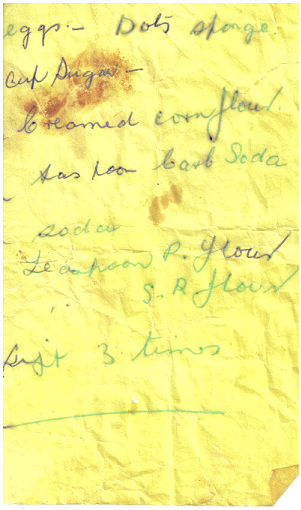 eggs - Dots sponge
cup Sugar -
Creamed cornflour
teaspoon Carb Soda
soda
Teaspoon P. flour
" S. R flour
Sift 3 times